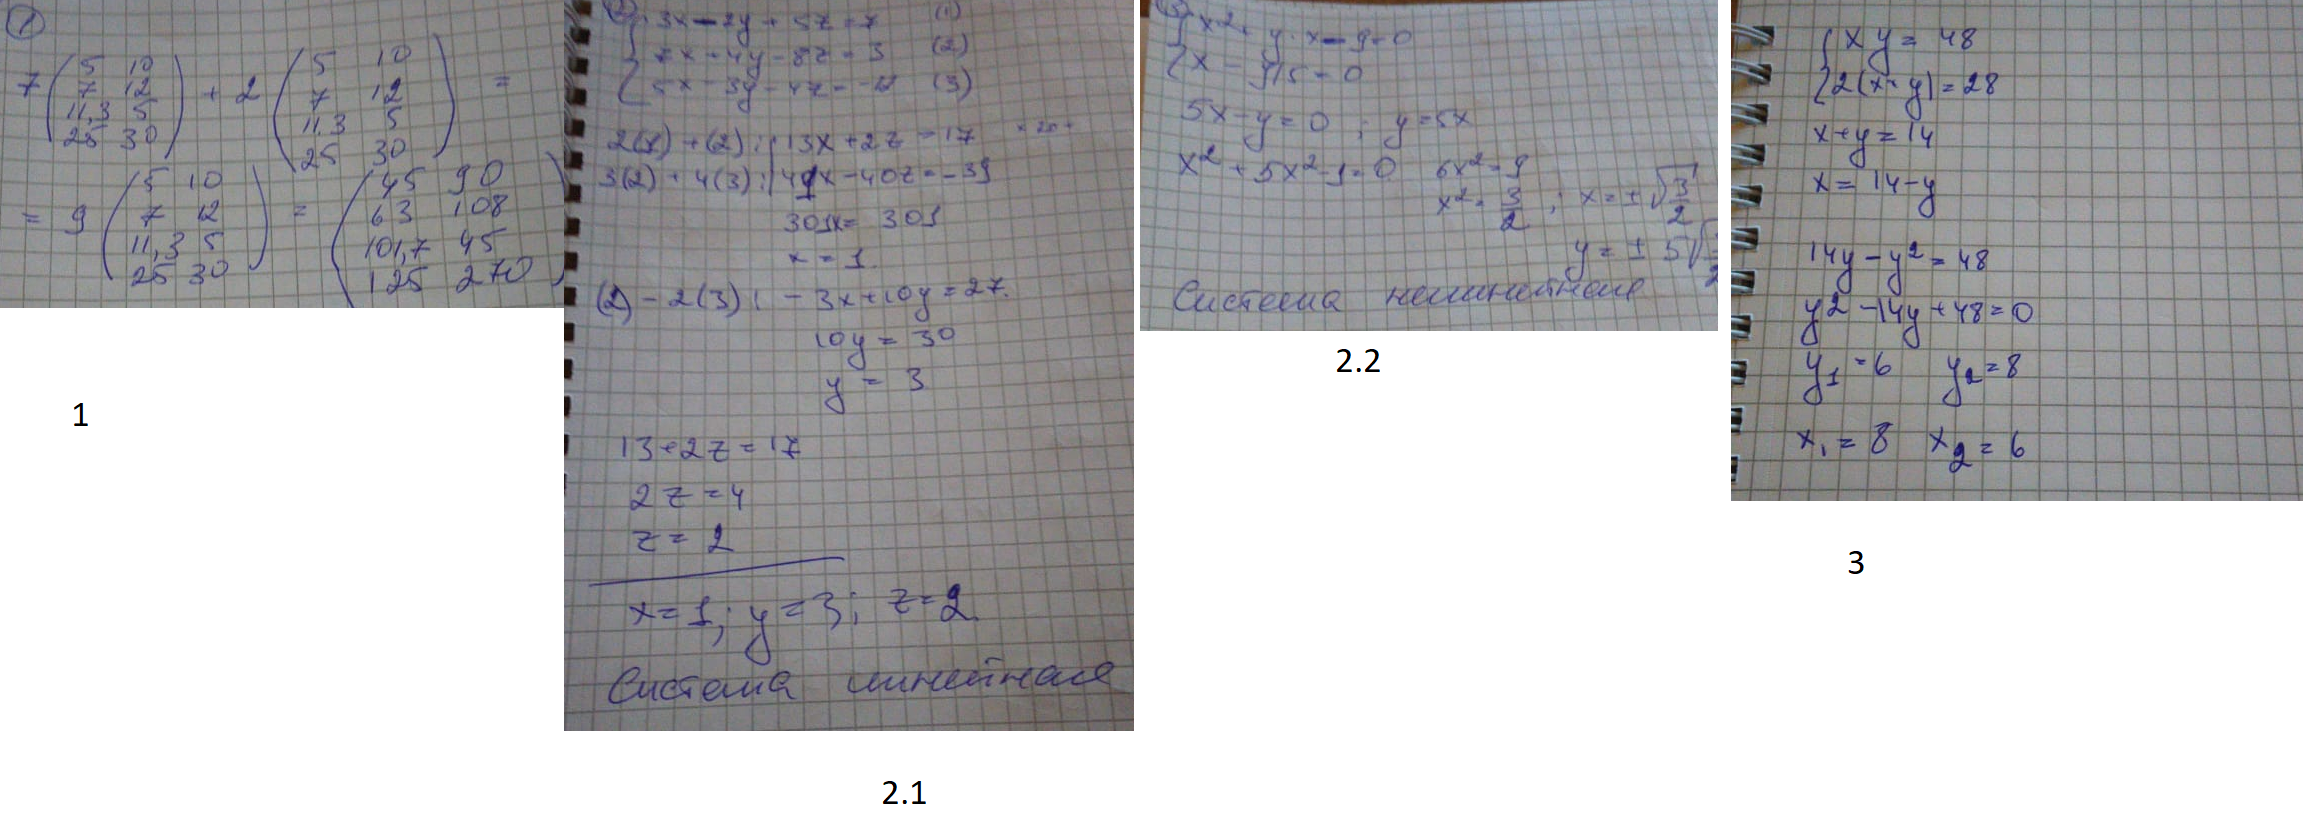 1
7 ( 5 10 ) + 2 ( 5 10 ) =
7 12 7 12
11,3 5 11,3 5
25 30 25 30
= 9 ( 5 10 ) = ( 45 90 )
7 12 63 108
11,3 5 101,7 45
25 30 125 270
1
3x - 2y + 5z = 7 (1)
7x + 4y - 8z = 3 (2)
5x - 3y - 4z = -12 (3)
2(1) + (2): 13x + 2z = 17
3(2) + 4(3): 41x - 40z = -39
301x = 301
x = 1
(2) - 2(3): - 3x + 10y = 27.
10y = 30
y = 3
13 + 2z = 17
2z = 4
z = 2
x = 1; y = 3; z = 2.
Система линейная
2.1
x² + y · x - 9 = 0
x - y/5 = 0
5x - y = 0 ; y = 5x
x² + 5x² - 9 = 0 6x² = 9
x² = 3/2 ; x = ± √3/2
y = ± 5√
Система нелинейная
2.2
xy = 48
2(x+y) = 28
x + y = 14
x = 14 - y
14y - y² = 48
y2 - 14y + 48 = 0
y1 = 6 y2 = 8
x1 = 8 x2 = 6
3